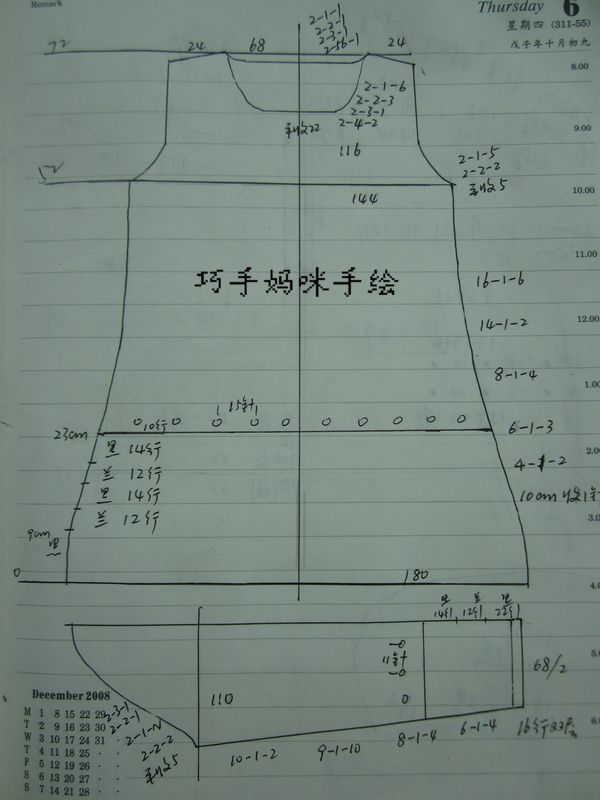 Remark
Thursday 6
星期四 (311-55)
戊子年十月初九
72
24
68
24
2-1-1
2-2-1
2-3-1
2-56-1
8.00
2-1-6
2-2-3
2-3-1
2-4-2
平收22
9.00
116
52
2-1-5
2-2-2
平收5
10.00
144
11.00
巧手妈咪手绘
16-1-6
14-1-2
12.00
8-1-4
1.00
15针
10行
23cm
6-1-3
黑 14行
兰 12行
黑 14行
兰 12行
2.00
4-1-2
10cm收1针
3.00
9cm
黑
0
180
4.00
黑 兰 黑
14行 12行 22行
5.00
11针
68/2
110
0
6.00
December 2008
M 1 8 15 22 29
T 2 9 16 23 30
W 3 10 17 24 31
T 4 11 18 25
F 5 12 19 26
S 6 13 20 27
S 7 14 21 28
2-3-1
2-2-1
2-2-2
平收5
10-1-2
9-1-10
8-1-4
6-1-4